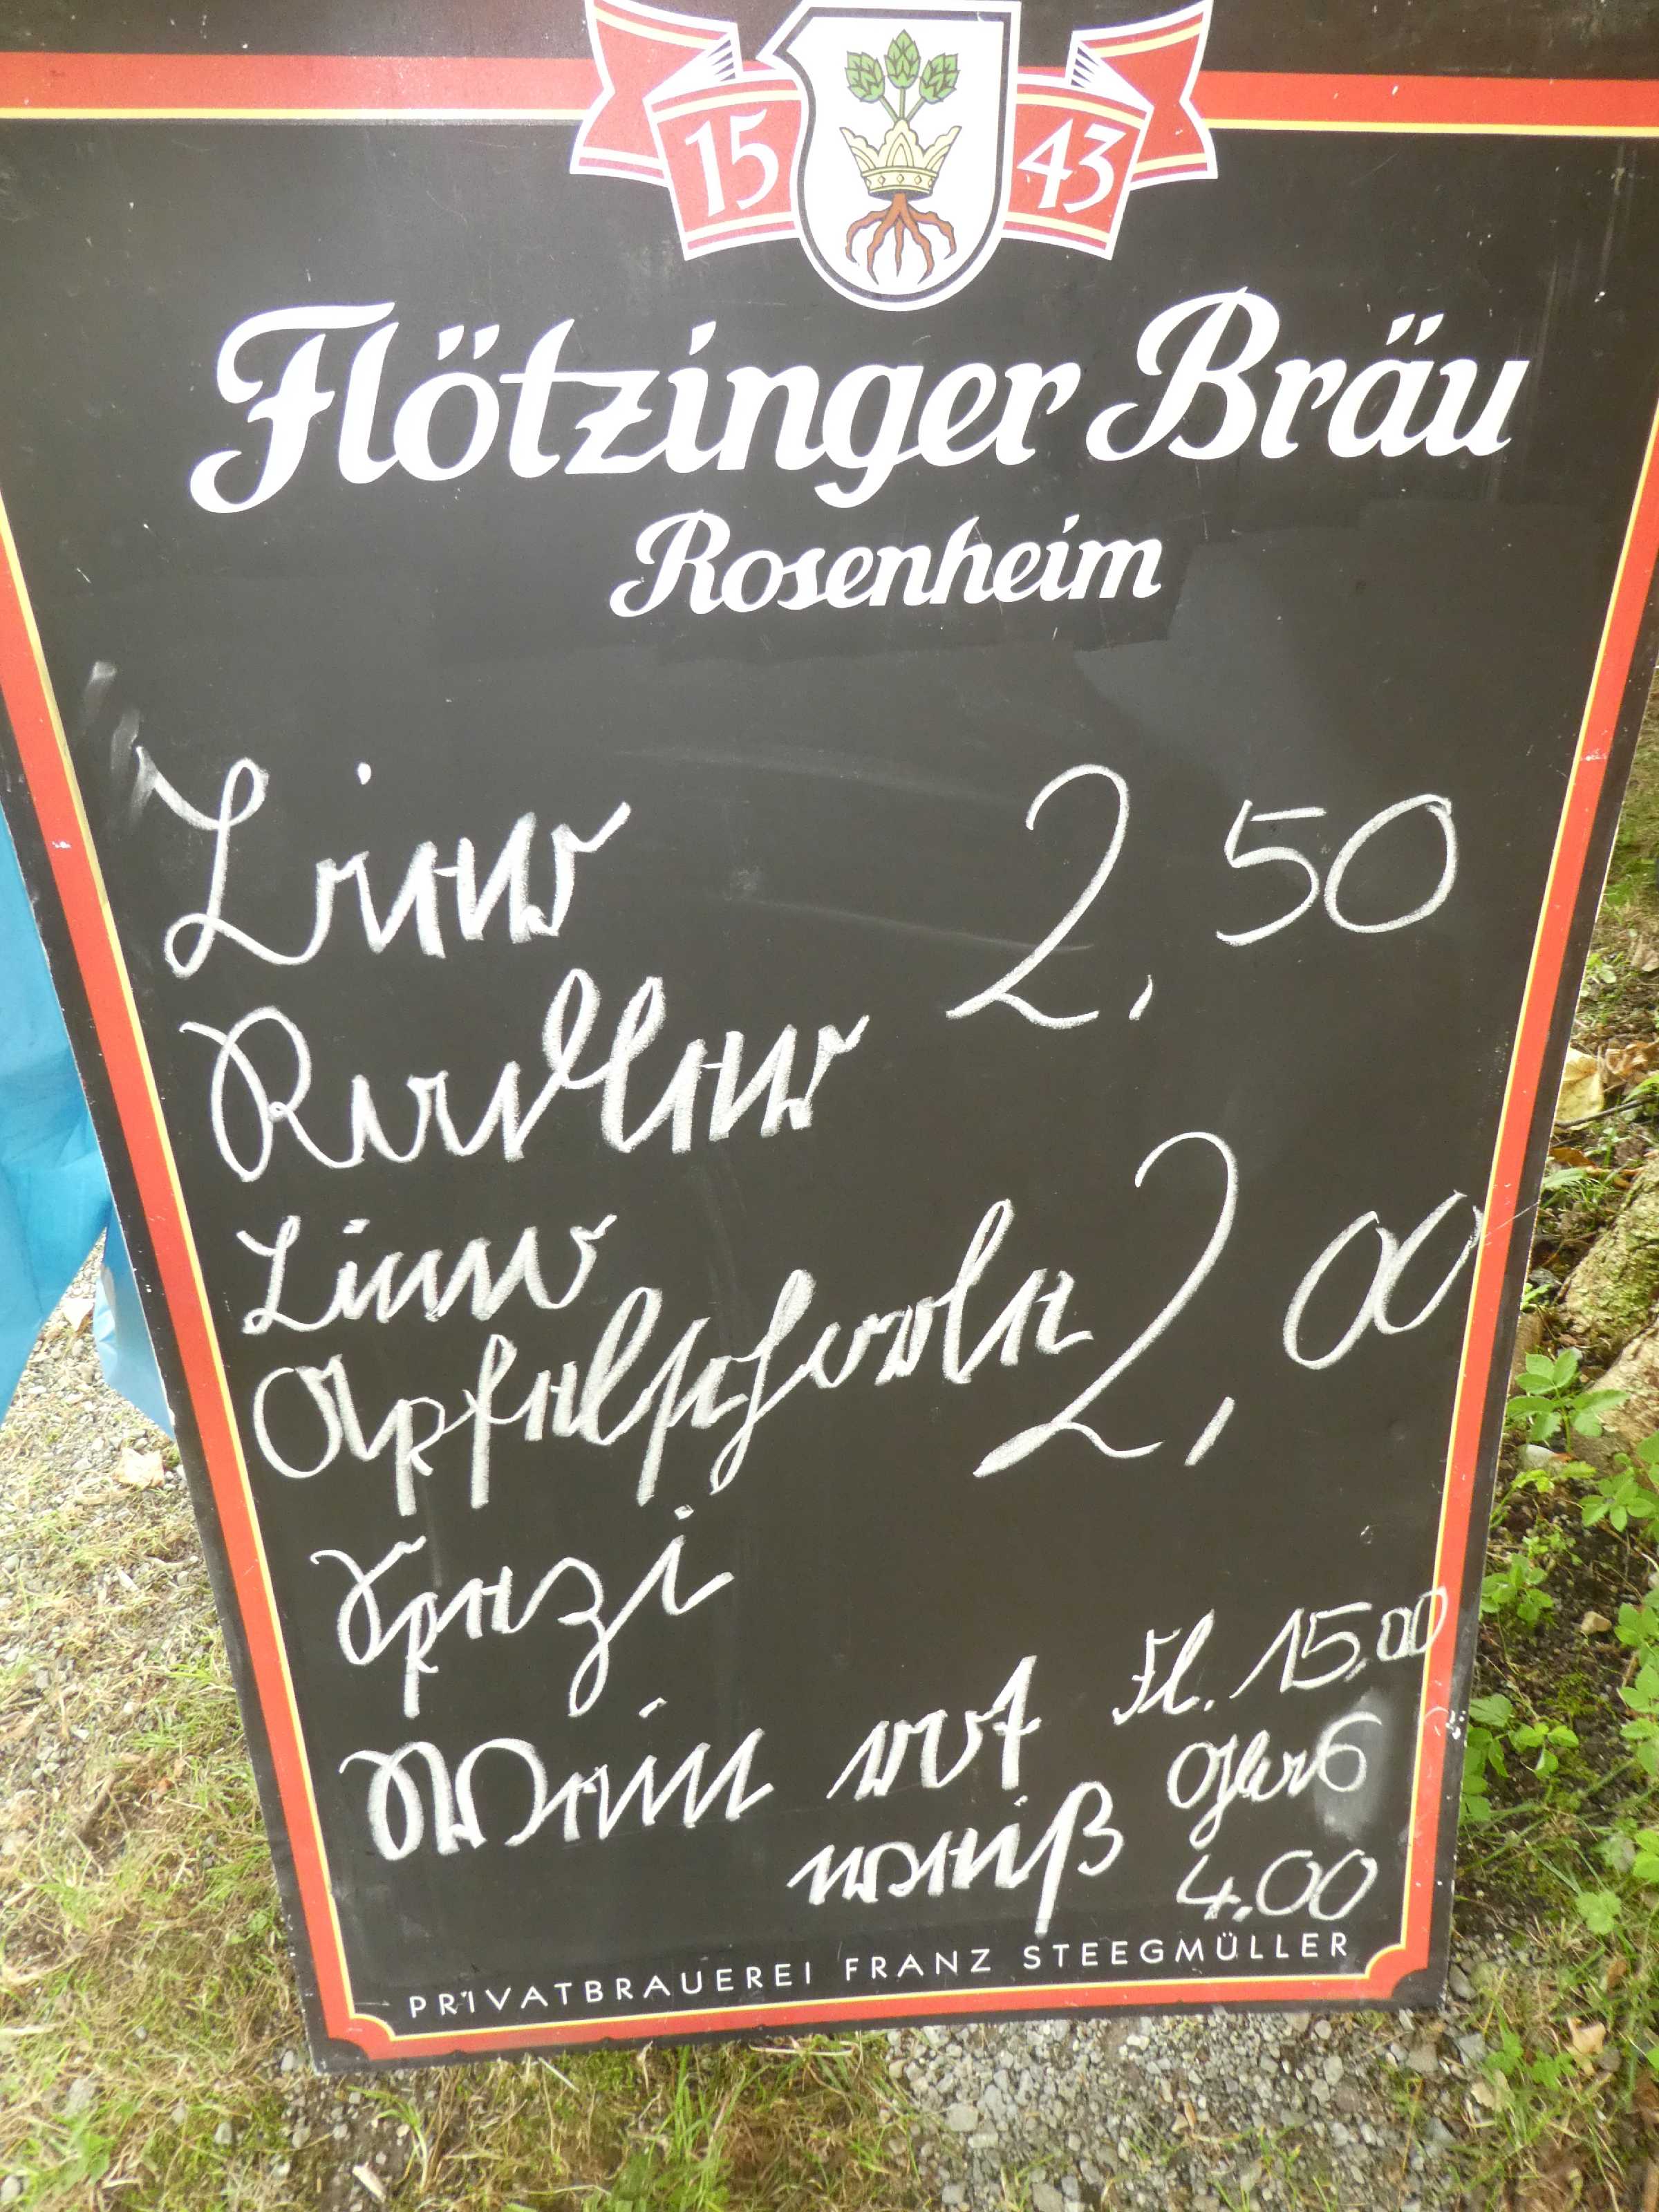 15 43
Flötzinger Bräu
Rosenheim
Bier 2,50
Radler
Limo
Apfelschorle 2,00
Spezi
Wein rot Fl. 15.00
weiß 4.00
PRIVATBRAUEREI FRANZ STEEGMÜLLER